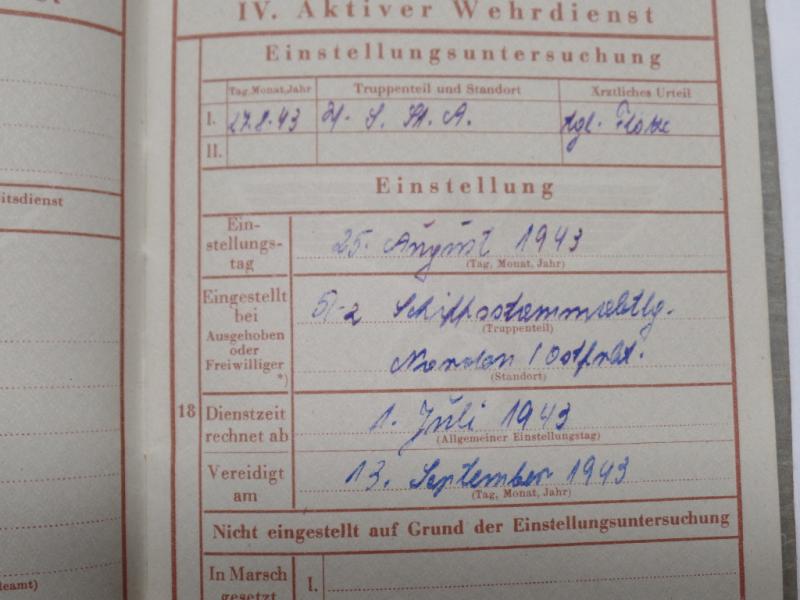 IV. Aktiver Wehrdienst
Einstellungsuntersuchung
Tag, Monat, Jahr Truppenteil und Standort Ärztliches Urteil
I. 27.8.43 S. St. A. tgl.
II.
Einstellung
itsdienst
Ein-
stellungs-
tag
25. August 1943
(Tag, Monat, Jahr)
Eingestellt
bei
Ausgehoben
oder
Freiwilliger
*)
Schiffsstammabtlg.
(Truppenteil)
Norden / Ostfrsl.
(Standort)
18
Dienstzeit
rechnet ab
1. Juli 1943
(Allgemeiner Einstellungstag)
Vereidigt
am
13. September 1943
(Tag, Monat, Jahr)
Nicht eingestellt auf Grund der Einstellungsuntersuchung
In Marsch
gesetzt
I.
leamt)